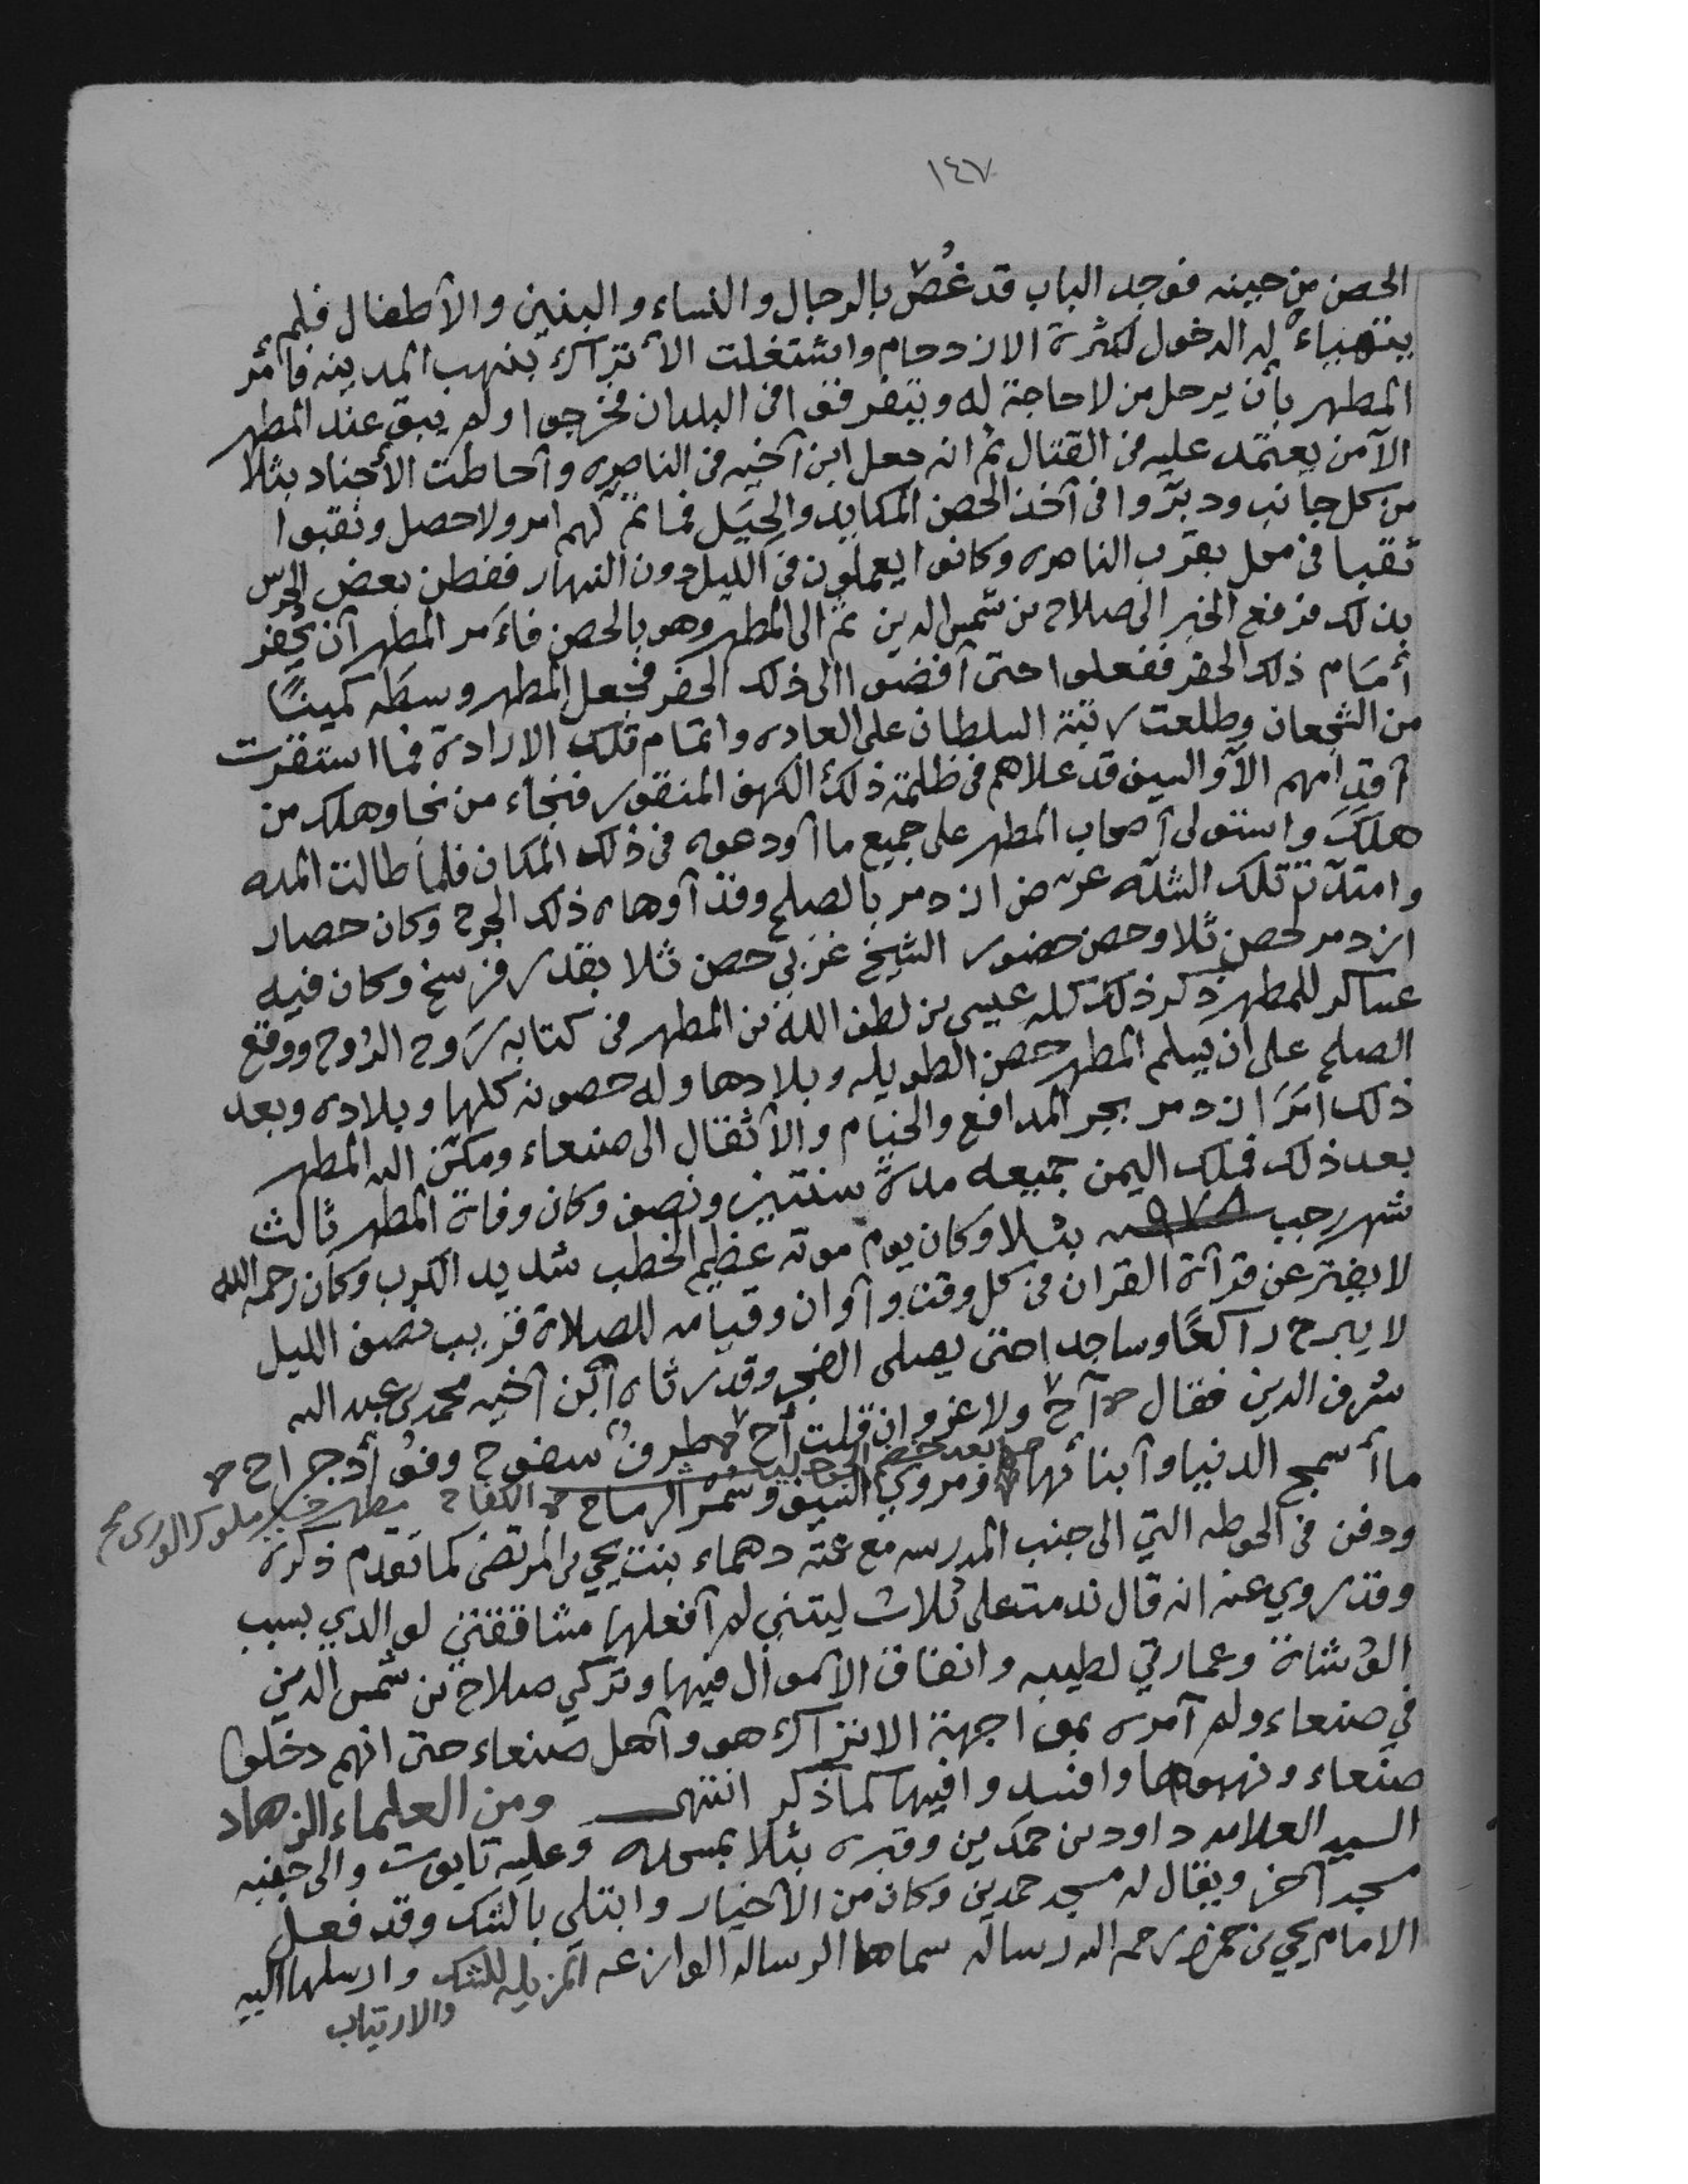 ١٤٧
الحصن من حينه فوجد الباب قد غُصّ بالرجال والنساء والبنين والأطفال فلم
يتهياء له الدخول لكثرة الازدحام واشتغلت الأتراك بنهب المدينه فأمر
المطهر بأن يرحل من لا حاجة له ويتفرقوا في البلدان فخرجوا ولم يبق عند المطهر
الا من يعتمد عليه في القتال ثم انه جعل ابن أخيه في الناصره وأحاطت الأجناد بثلا
من كل جانب ودبّروا في أخذ الحصن المكايد والحِيَل فما تمّ لهم امر ولا حصل ونقبوا
نقبا في محل بقرب الناصره وكانوا يعملون في الليل دون النهار ففطن بعض الحرس
بذلك فرفع الخبر الى صلاح بن شمس الدين ثمّ الى المطهر وهو بالحصن فاءَمر المطهر أن يحفر
أمام ذلك الحفر ففعلوا حتى أفضوا الى ذلك الحفر فجعل المطهر وسطه كمينًا
من الشجعان وطلعت رتبة السلطان على العاده واتمام تلك الارادة فما استقرت
أقدامهم الا والسيف قد علاهم في ظلمة ذلك الكهف المنقور فنجاء من نجا وهلك من
هلك واستولى أصحاب المطهر على جميع ما أودعوه في ذلك المكان فلما طالت المده
وامتدّت تلك الشدّه عرّض ازدمر بالصلح وقد أوهاه ذلك الجرح وكان حصار
ازدمر لحصن ثلا وحصن حضور الشيخ غربي حصن ثلا بقدر فرسخ وكان فيه
عساكر للمطهر ذكر ذلك كله عيسى بن لطف الله بن المطهر في كتابه رَوح الرُوح ووقع
الصلح على ان يسلم المطهر حصن الطويله وبلادها وله حصونه كلها وبلاده وبعد
ذلك أمَرَ ازدمر بجر المدافع والخيام والأثقال الى صنعاء ومكّن الله المطهر
بعد ذلك فملك اليمن جميعه مدة سنتين ونصف وكان وفاة المطهر ثالث
شهر رجب سنة ٩٧٨ بثلا وكان يوم موته عظيم الخطب شديد الكرب وكان رحمه الله
لا يفتر عن قرآئة القران في كل وقت وأوان وقيامه للصلاة قريب نصف الليل
لا يبرح راكعًا وساجدا حتى يصلى الفجر وقد رثاه ابن أخيه محمد بن عبد الله
شرف الدين فقال أح ولا غرو ان قلت أح طرفٌ سفوح وفؤأد جراح
ما أسمج الدنيا وأبنائها بعد ومروي السيف وسُمْر الرماح الكفاح مطهر خير ملوك الورى صح
ودفن في الحوطه التي الى جنب المدرسه مع عمته دهماء بنت يحيى المرتضى كما تقدم ذكره
وقد روي عنه انه قال ندمت على ثلاث ليتني لم أفعلها مشاققتي لوالدي بسبب
الوشاة وعمارتي لطيبه وانفاق الأموال فيها وتركي صلاح بن شمس الدين
في صنعاء ولم آمره بمواجهة الاتراك هو وأهل صنعاء حتى انهم دخلوا
صنعاء ونهبوها وافسدوا فيها كما ذكر انتهى ومن العلماء الزهاد
السيد العلامه داود بن حمدين وقبره بثلا بمسجده وعليه تابوت والى جنبه
مسجد آخر ويقال له مسجد حمدين وكان من الأخيار وابتلي بالشك وقد فعل
الامام يحيى بن حمزه رحمه الله رساله سماها الرساله الوازعه المزيله للشك وارسلها اليه
والارتياب